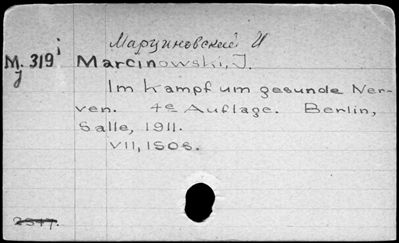 Марциновский И
M. 319 i Marcinowski, J.
y
Im Kampf um gesunde Ner-
ven. 4e Auflage. Berlin,
Salle, 1911.
VII, 150s.